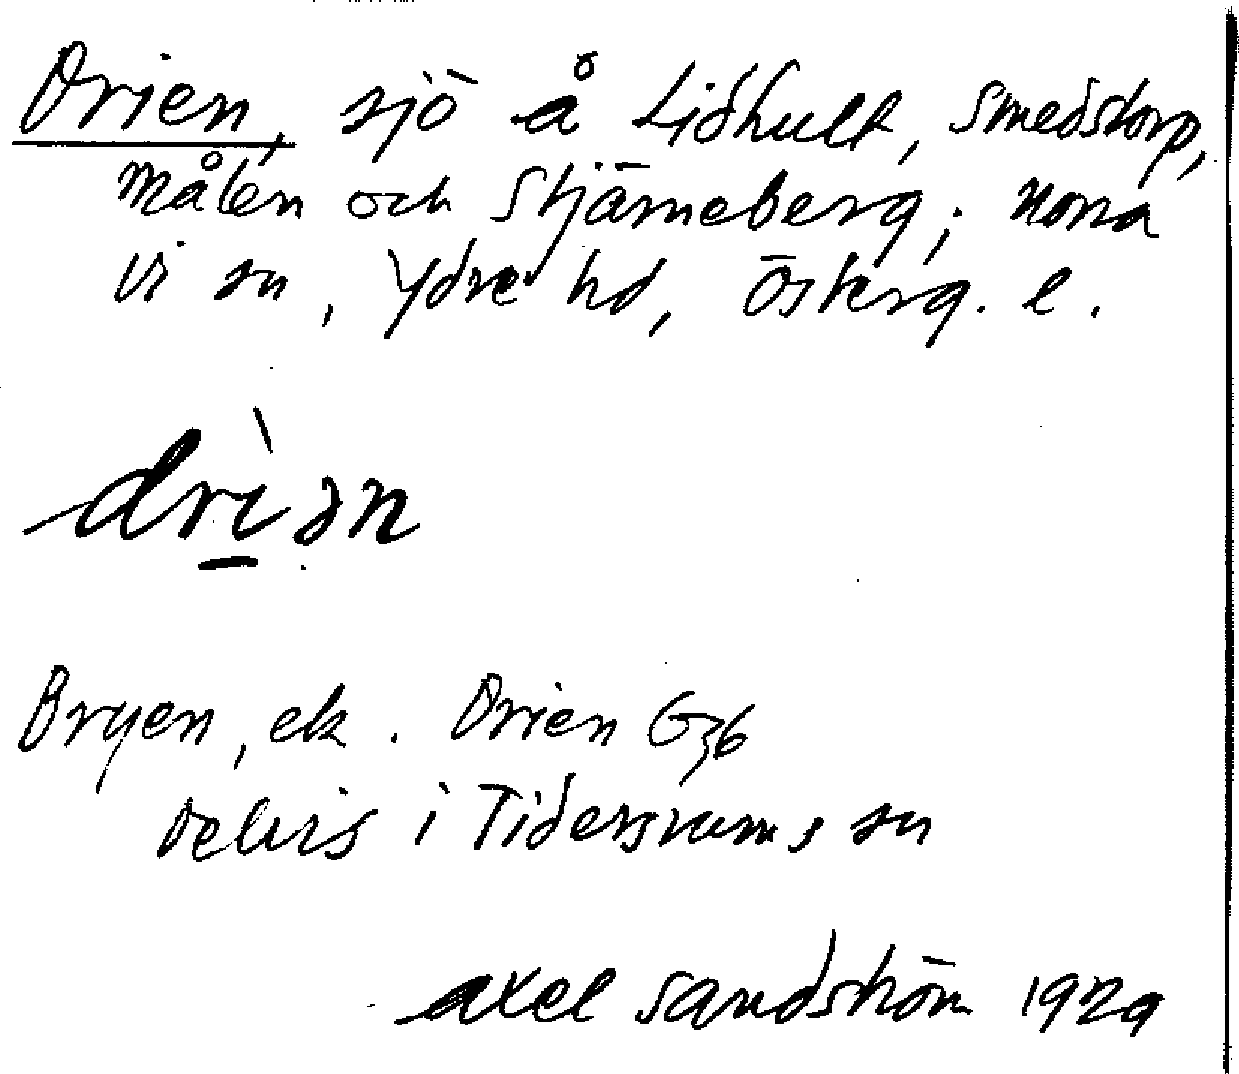 Drien, sjö å Lidhult, Smedstorp,
Målen och Stjärneberg; Norra
Vi sn, Ydre hd, Österg. l.
drìən
Dryen, ek. Drien G36
Delvis i Tidersrums sn
Axel Sandström 1929